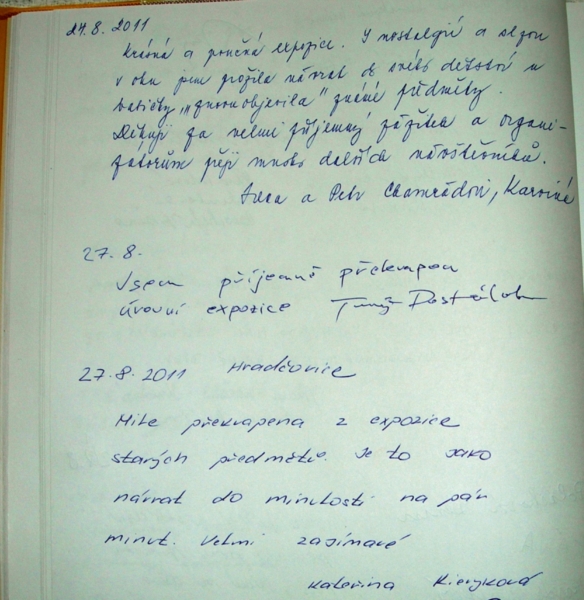 24.8.2011
Krásná a poučná expozice. S nostalgií a slzou
v oku jsem prožila návrat do svého dětství u
babičky, "znovuobjevila" známé předměty.
Děkuji za velmi příjemný zážitek a organi-
zátorům přeji mnoho dalších návštěvníků.
a Petr Chamrádovi, Karviná
27.8.
Jsem příjemně překvapen
úrovní expozice Dostál
27.8.2011 Hradčovice
Mile překvapena z expozice
starých předmětů. Je to jako
návrat do minulosti na pár
minut. Velmi zajímavé
Kateřina